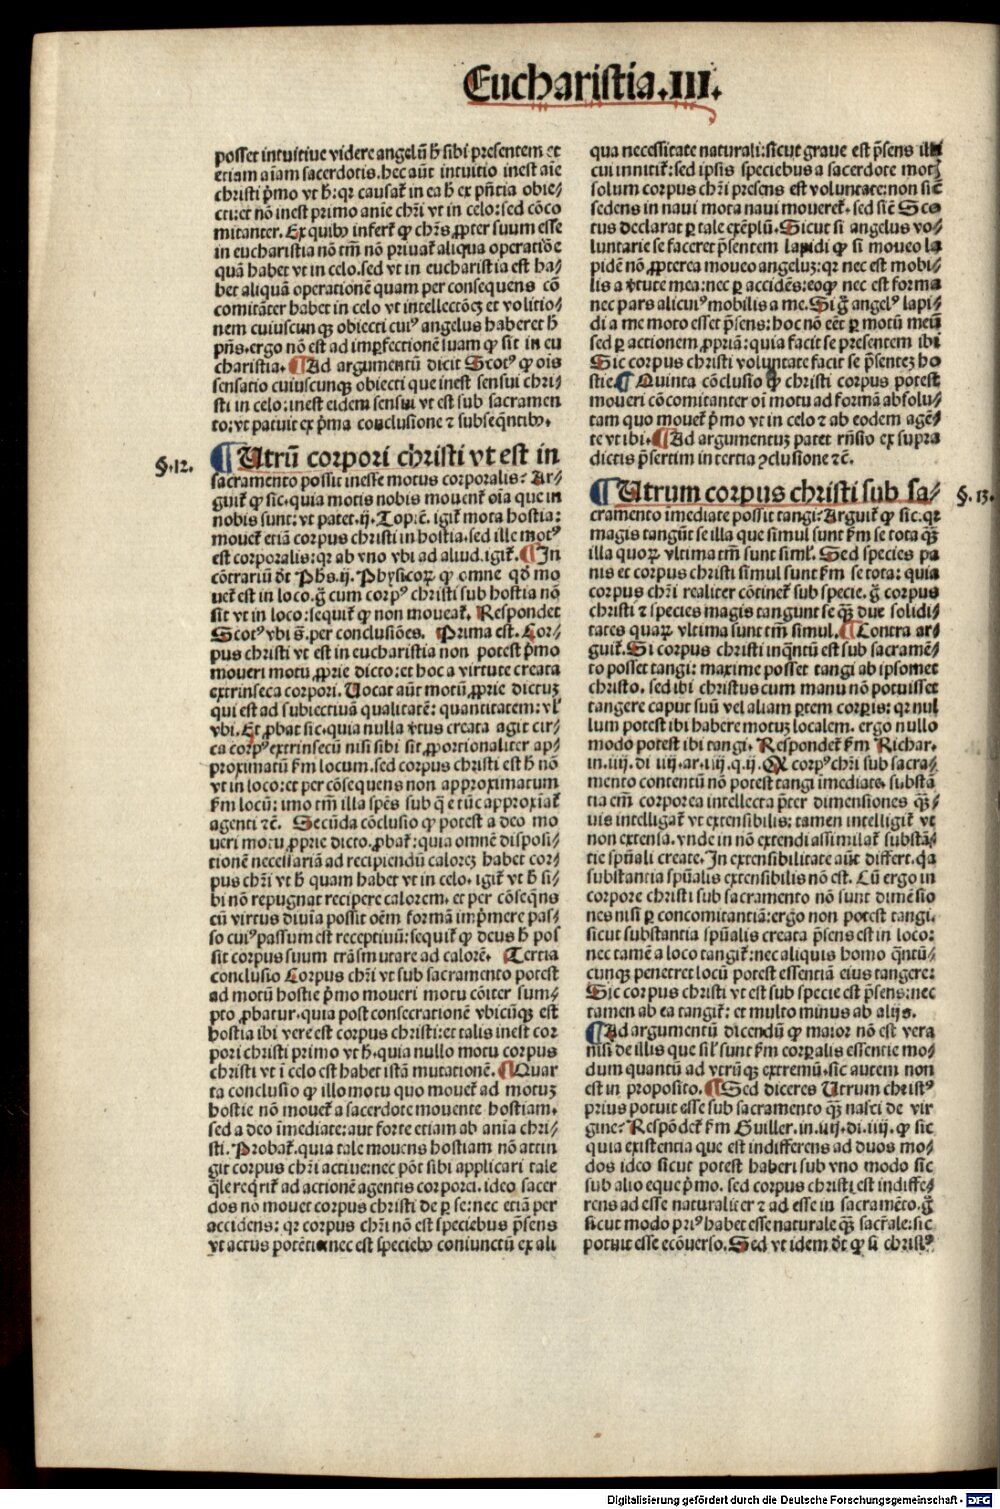 Eucharistia.III.
posset intuitiue videre angelū h̄ sibi presentem et
etiam aīam sacerdotis. hec aūt intuitio inest aīe
christi p̄mo vt h̄: qr causat̄ in ea h̄ ex p̄ntia obie-
cti: et nō inest primo anie chr̄i vt in celo: sed cōco
mitanter. Ex quibꝰ infert̄ ꝙ chr̄s ꝓpter suum esse
in eucharistia nō tm̄ nō priuat̄ aliqua operatiōe
quā habet vt in celo. sed vt in eucharistia est ha-
bet aliquā operationē quam per consequens cō
comitāter habet in celo vt intellectōeꝫ et volitio-
nem cuiuscunqꝫ obiecti cuiꝰ angelus haberet h̄
p̄ns. ergo nō est ad imꝑfectionē suam ꝙ sit in eu
charistia. ¶ Ad argumentū dicit Scotꝰ ꝙ oīs
sensatio cuiuscunqꝫ obiecti que inest sensui chri-
sti in celo: inest eidem sensui vt est sub sacramen
to: vt patuit ex p̄ma conclusione ⁊ subseq̄ntibꝰ.
§.12. ¶ Utrū corpori christi vt est in
sacramento possit inesse motus corporalis? Ar-
guit̄ ꝙ sic. quia motis nobis mouent̄ oīa que in
nobis sunt: vt patet .ij. Top.c̄. igit̄ mota hostia:
mouet̄ etiā corpus christi in hostia. sed ille motꝰ
est corporalis: qr ab vno vbi ad aliud. igit̄. ¶ In
cōtrariū dt̄ Phs .ij. Physicoꝝ ꝙ omne qd̄ mo
uet̄ est in loco. ḡ cum corpꝰ christi sub hostia nō
sit vt in loco: sequit̄ ꝙ non moueat̄. Respondet
Scotꝰ vbi s̄. per conclusiōes. Prima est. Cor-
pus christi vt est in eucharistia non potest p̄mo
moueri motu ꝓprie dicto: et hoc a virtute creata
extrinseca corpori. Uocat aūt motū ꝓprie dictuꝫ
qui est ad subiectiuā qualitatē: quantitatem: vl̓
vbi. Et ꝓbat sic. quia nulla v̓tus creata agit cir-
ca corpꝰ extrinsecū nisi sibi sit ꝓportionaliter ap-
proximatū fm̄ locum. sed corpus christi est h̄ nō
vt in loco: et per cōsequens non approximatum
fm̄ locū: imo tm̄ illa sp̄es sub q̄ e tūc approxīat̄
agenti ⁊c̄. Secūda cōclusio ꝙ potest a deo mo
ueri motu ꝓprie dicto. ꝓbat̄: quia omnē disposi-
tionē necessariā ad recipiendū caloreꝫ habet cor-
pus chr̄i vt h̄ quam habet vt in celo. igit̄ vt h̄ si-
bi nō repugnat recipere calorem. et per cōseq̄ns
cū virtus diuīa possit oēm formā imp̄mere pas-
so cuiꝰ passum est receptiuū: sequit̄ ꝙ deus h̄ pos
sit corpus suum trāsmutare ad calorē. Tertia
conclusio Corpus chr̄i vt sub sacramento potest
ad motū hostie p̄mo moueri motu cōiter sum-
pto ꝓbatur. quia post consecrationē vbicūqꝫ est
hostia ibi vere est corpus christi: et talis inest cor
pori christi primo vt h̄. quia nullo motu corpus
christi vt ī celo est habet istā mutationē. ¶ Quar
ta conclusio ꝙ illo motu quo mouet̄ ad motuꝫ
hostie nō mouet̄ a sacerdote mouente hostiam.
sed a deo īmediate: aut forte etiam ab anīa chri-
sti. Probat̄. quia tale mouens hostiam nō attin
git corpus chr̄i actiue: nec pōt sibi applicari tale
q̄le reqrit̄ ad actionē agentis corporei. ideo sacer
dos nō mouet corpus christi de ꝑ se: nec etiā per
accidens: qr corpus chr̄i nō est speciebus p̄sens
vt actus potētie nec est speciebꝰ coniunctū ex ali
qua necessitate naturali: sicut graue est p̄sens illi
cui innitit̄: sed ipsis speciebus a sacerdote motꝫ
solum corpus chr̄i presens est voluntate: non sic̄
sedens in naui mota naui mouereť. sed sic̄ Sco
tus declarat ꝑ tale exēplū. Sicut si angelus vo-
luntarie se faceret p̄sentem lapidi ꝙ si moueo la
pidē nō ꝓpterea moueo angeluꝫ: qr nec est mobi-
lis a v̓tute mea: nec ꝑ accidēs: eoꝙ nec est forma
nec pars alicuiꝰ mobilis a me. Si ḡ angelꝰ lapi-
di a me moto esset p̄sens: hoc nō eēt ꝑ motū meū
sed ꝑ actionem ꝓpriā: quia facit se presentem ibi
Sic corpus christi voluntate facit se p̄senteꝫ ho
stie. ¶ Quinta cōclusio ꝙ christi corpus potest
moueri cōcomitanter oī motu ad formā absolu-
tam quo mouet̄ p̄mo vt in celo ⁊ ab eodem agē-
te vt ibi. ¶ Ad argumentuꝫ patet rn̄sio ex supra
dictis p̄sertim in tertia ꝯclusione ⁊c̄.
¶ Utrum corpus christi sub sa- §.13.
cramento īmediate possit tangi? Arguit̄ ꝙ sic. qr
magis tangūt se illa que simul sunt fm̄ se tota qꝫ̄
illa quoꝝ vltima tm̄ sunt siml̓. Sed species pa
nis et corpus christi simul sunt fm̄ se tota: quia
corpus chr̄i realiter cōtinet̄ sub specie. ḡ corpus
christi ⁊ species magis tangunt se qꝫ̄ due solidi-
tates quaꝝ vltima sunt tm̄ simul. ¶ Contra ar-
guit̄. Si corpus christi inq̄ntū est sub sacramē-
to posset tangi: maxime posset tangi ab ipsomet
christo. sed ibi christus cum manu nō potuisset
tangere caput suū vel aliam ꝑtem corꝑis: qr nul
lum potest ibi habere motuꝫ localem. ergo nullo
modo potest ibi tangi. Respondet̄ fm̄ Richar.
in .iiij. di iiij. ar. iiij. q. ij. Q corpꝰ chr̄i sub sacra-
mento contentū nō potest tangi īmediate. substā
tia em̄ corporea intellecta p̄ter dimensiones qꝫ̄-
uis intelligat̄ vt extensibilis: tamen intelligit̄ vt
non extensa. vnde in nō extendi assimilat̄ substā-
tie sp̄uali create. In extensibilitate aūt differt. q̄a
substantia sp̄ualis extensibilis nō est. Cū ergo in
corpore christi sub sacramento nō sunt dimēsio
nes nisi ꝑ concomitantiā: ergo non potest tangi.
sicut substantia sp̄ualis creata p̄sens est in loco:
nec tamē a loco tangit̄: nec aliquis homo q̄ntū-
cunqꝫ penetret locū potest essentiā eius tangere:
Sic corpus christi vt est sub specie est p̄sens: nec
tamen ab ea tangit̄: et multo minus ab alijs.
¶ Ad argumentū dicendū ꝙ maior nō est vera
nisi de illis que sil̓ sunt fm̄ corꝑalis essentie mo-
dum quantū ad vtrūqꝫ extremū. sic autem non
est in proposito. ¶ Sed diceres Utrum christꝰ
prius potuit esse sub sacramento qꝫ̄ nasci de vir
gine? Respōdet̄ fm̄ Guiller. in. iiij. di. iiij. ꝙ sic
quia existentia que est indifferens ad duos mo-
dos ideo sicut potest haberi sub vno modo sic
sub alio eque p̄mo. sed corpus christi est indiffe-
rens ad esse naturaliter ⁊ ad esse in sacramēto. ḡ
sicut modo priꝰ habet esse naturale qꝫ̄ sacr̄ale: sic
potuit esse ecōuerso. Sed vt idem dt̄ ꝙ si christꝰ
Digitalisierung gefördert durch die Deutsche Forschungsgemeinschaft - DFG